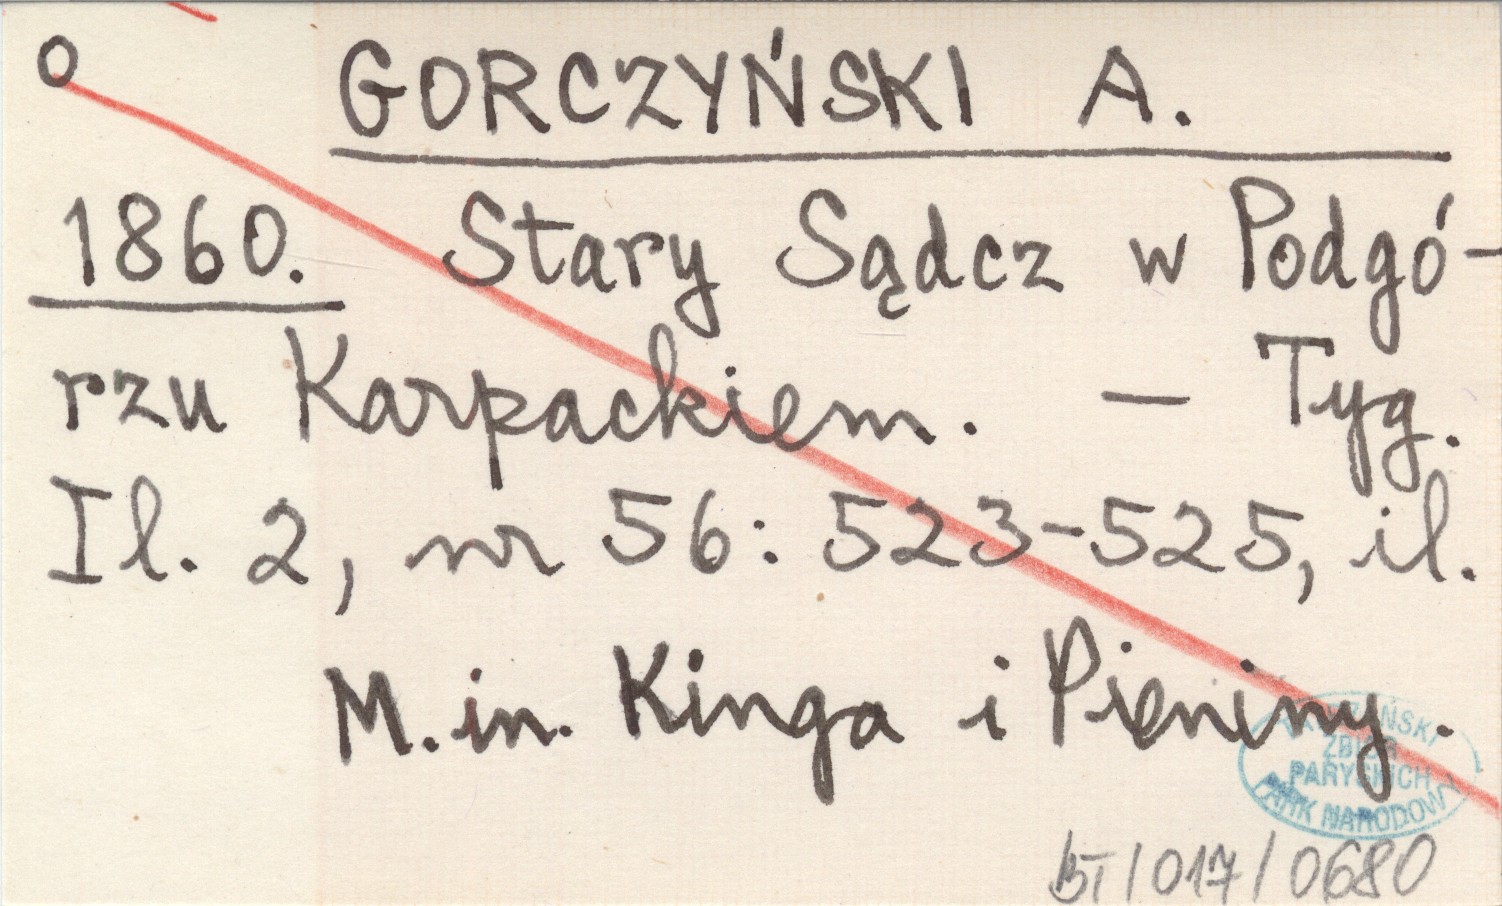 o GORCZYŃSKI A.
1860. Stary Sądcz w Podgó-
rzu Karpackiem. — Tyg.
Il. 2, nr 56: 523-525, il.
M. in. Kinga i Pieniny.
ZBIÓR
PARYSKICH
PARK NARODOWY
BT/017/0680